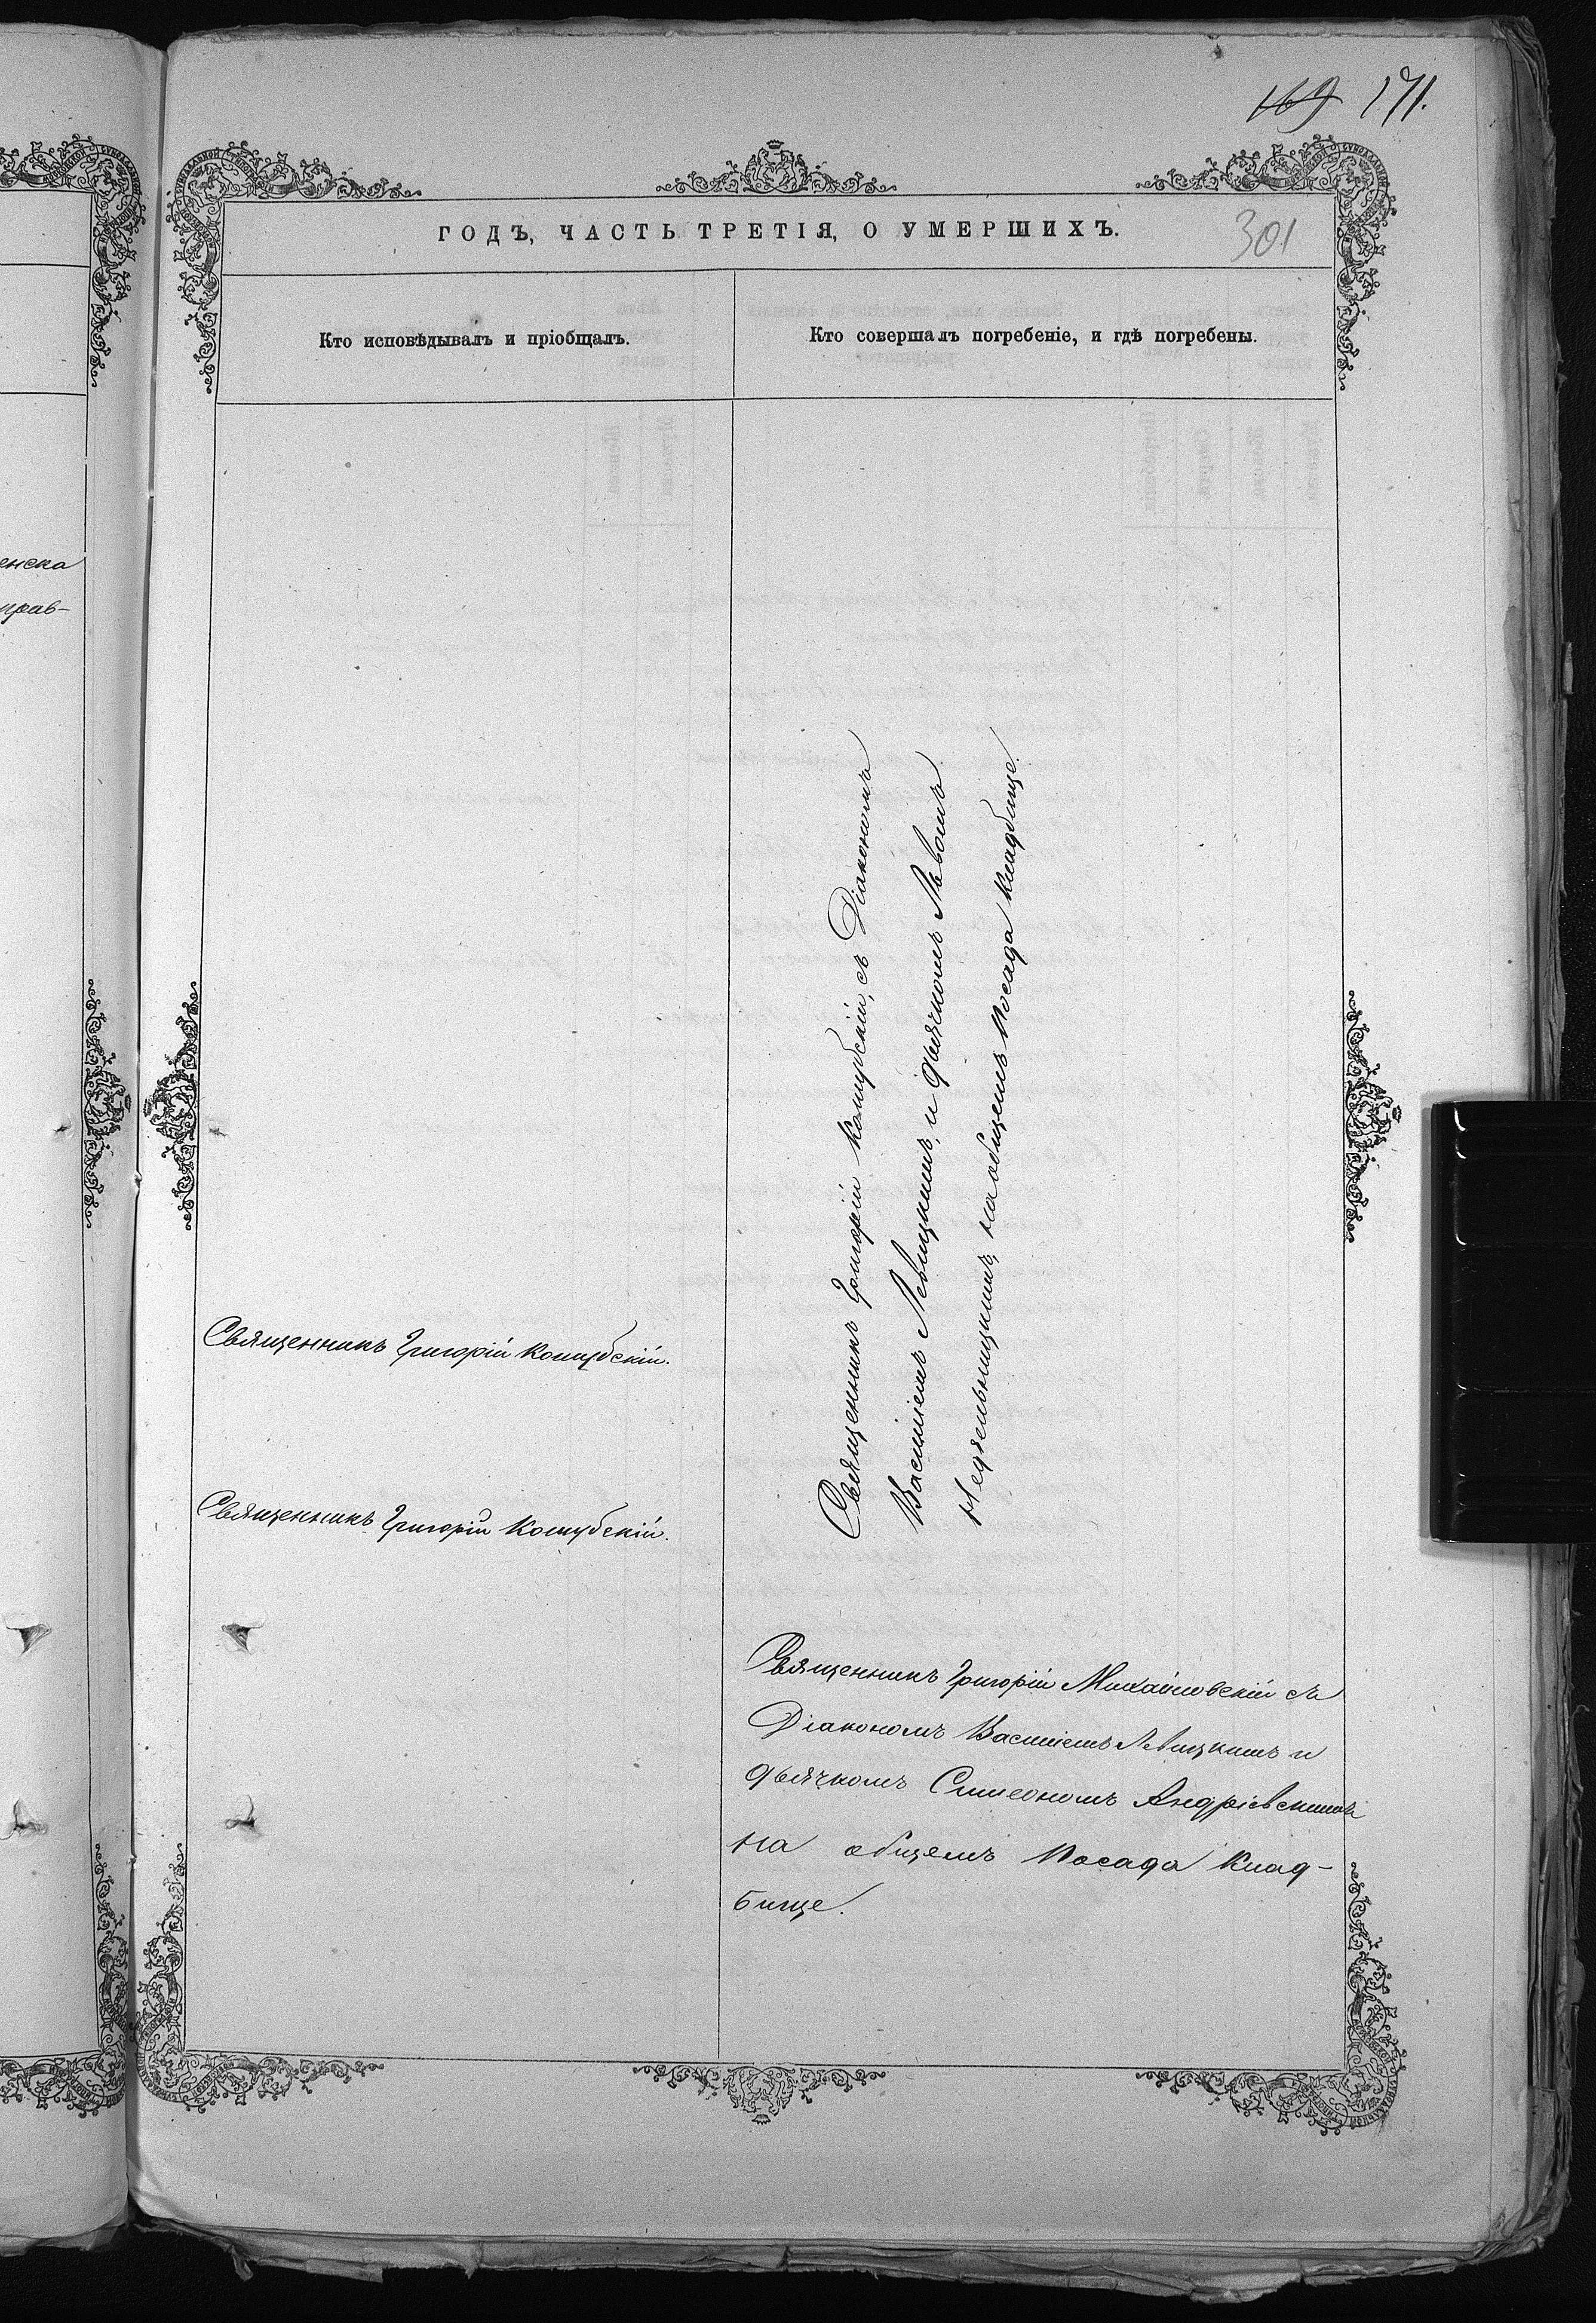 169 171.
ГОДЪ, ЧАСТЬ ТРЕТІЯ, О УМЕРШИХЪ.
301
Кто исповѣдывалъ и пріобщалъ.
Кто совершалъ погребеніе, и гдѣ погребены.
Священникъ Григорій Кошубскій.
Священникъ Григорій Кошубскій.
Священникъ Григорій Кошубскій, съ Діакономъ
Василіемъ Левицкимъ, и дьячкомъ Львомъ
Недзельницкимъ, на общемъ Посада кладбище.
Священникъ Григорій Михайловскій съ
Діакономъ Василіемъ Левицкимъ и
дьячкомъ Симеономъ Андріевскимъ
на общемъ Посада клад-
бище.